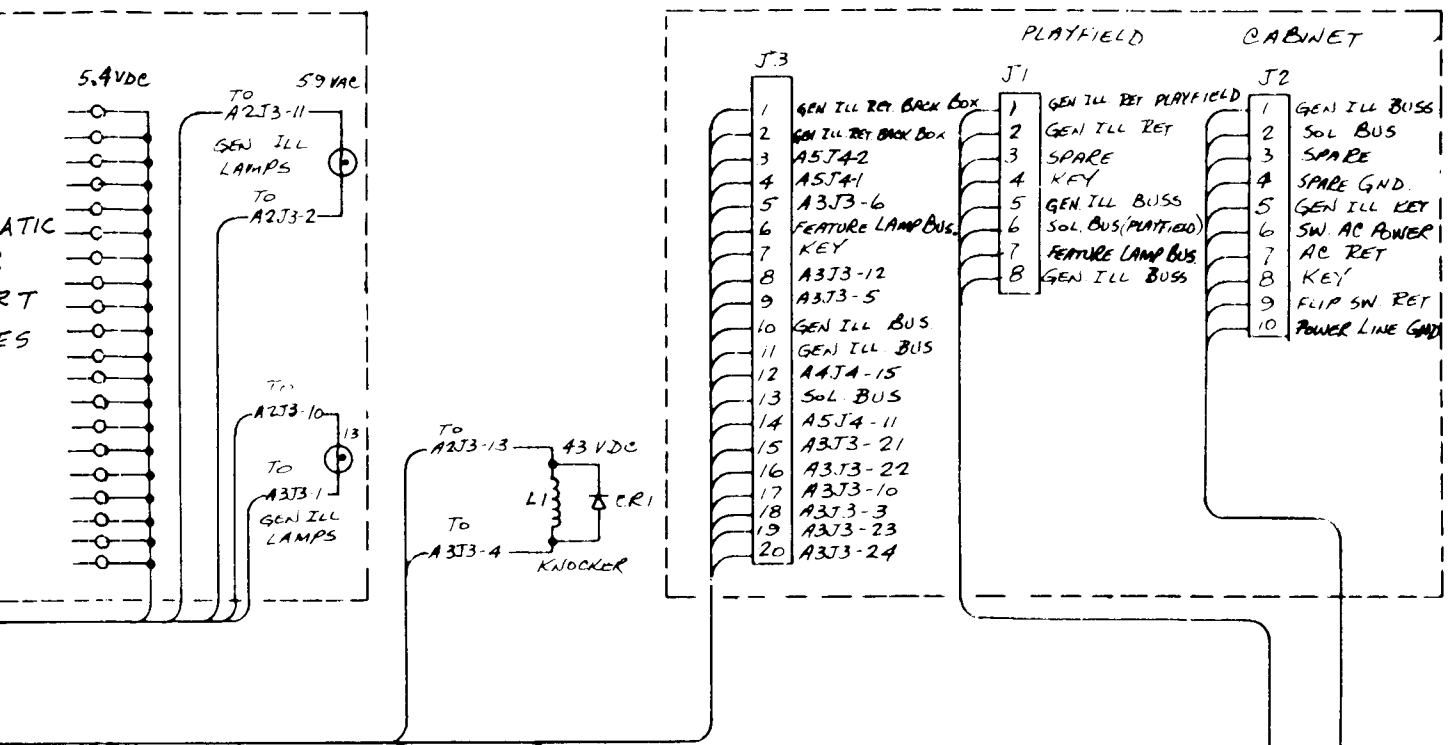 5.4VDC
TO
A2J3-11
59 VAC
GEN ILL
LAMPS
TO
A2J3-2
ATIC
RT
ES
TO
A2J3-10
13
TO
A3J3-1
GEN ILL
LAMPS
TO
A2J3-13
43 VDC
L1
CR1
TO
A3J3-4
KNOCKER
J3
1 GEN ILL RET. BACK BOX
2 GEN ILL RET BACK BOX
3 A5J42
4 A5J41
5 A3J3-6
6 FEATURE LAMP BUS.
7 KEY
8 A3J3-12
9 A3J3-5
10 GEN ILL BUS.
11 GEN ILL. BUS
12 A4J4-15
13 SOL. BUS
14 A5J4-11
15 A3J3-21
16 A3J3-22
17 A3J3-10
18 A3J3-3
19 A3J3-23
20 A3J3-24
PLAYFIELD
J1
1 GEN ILL RET PLAYFIELD
2 GEN ILL RET
3 SPARE
4 KEY
5 GEN. ILL BUSS
6 SOL. BUS (PLAYFIELD)
7 FEATURE LAMP BUS.
8 GEN ILL BUSS
CABINET
J2
1 GEN ILL BUSS
2 SOL BUS
3 SPARE
4 SPARE GND.
5 GEN ILL RET
6 SW. AC POWER
7 AC RET
8 KEY
9 FLIP SW. RET
10 POWER LINE GND